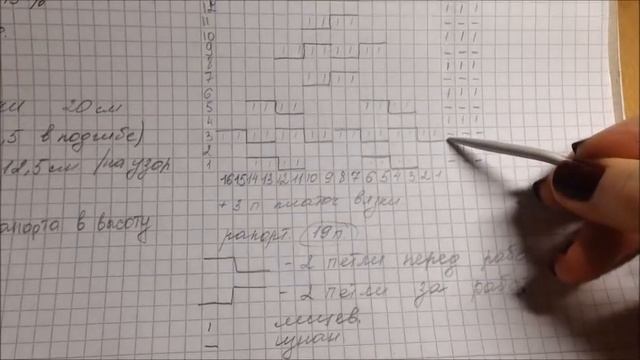 12
11
10
9
8
7
6
5
4
3
2
1
16 15 14 13 12 11 10 9 8 7 6 5 4 3 2 1
+ 3 п платоч вязки
рапорт 19п
- 2 петли перед рабо
- 2 петли за рабо
1 лицев.
— изнан
20 см
,5 в подгибе)
12,5 см /на узор
апорта в высоту